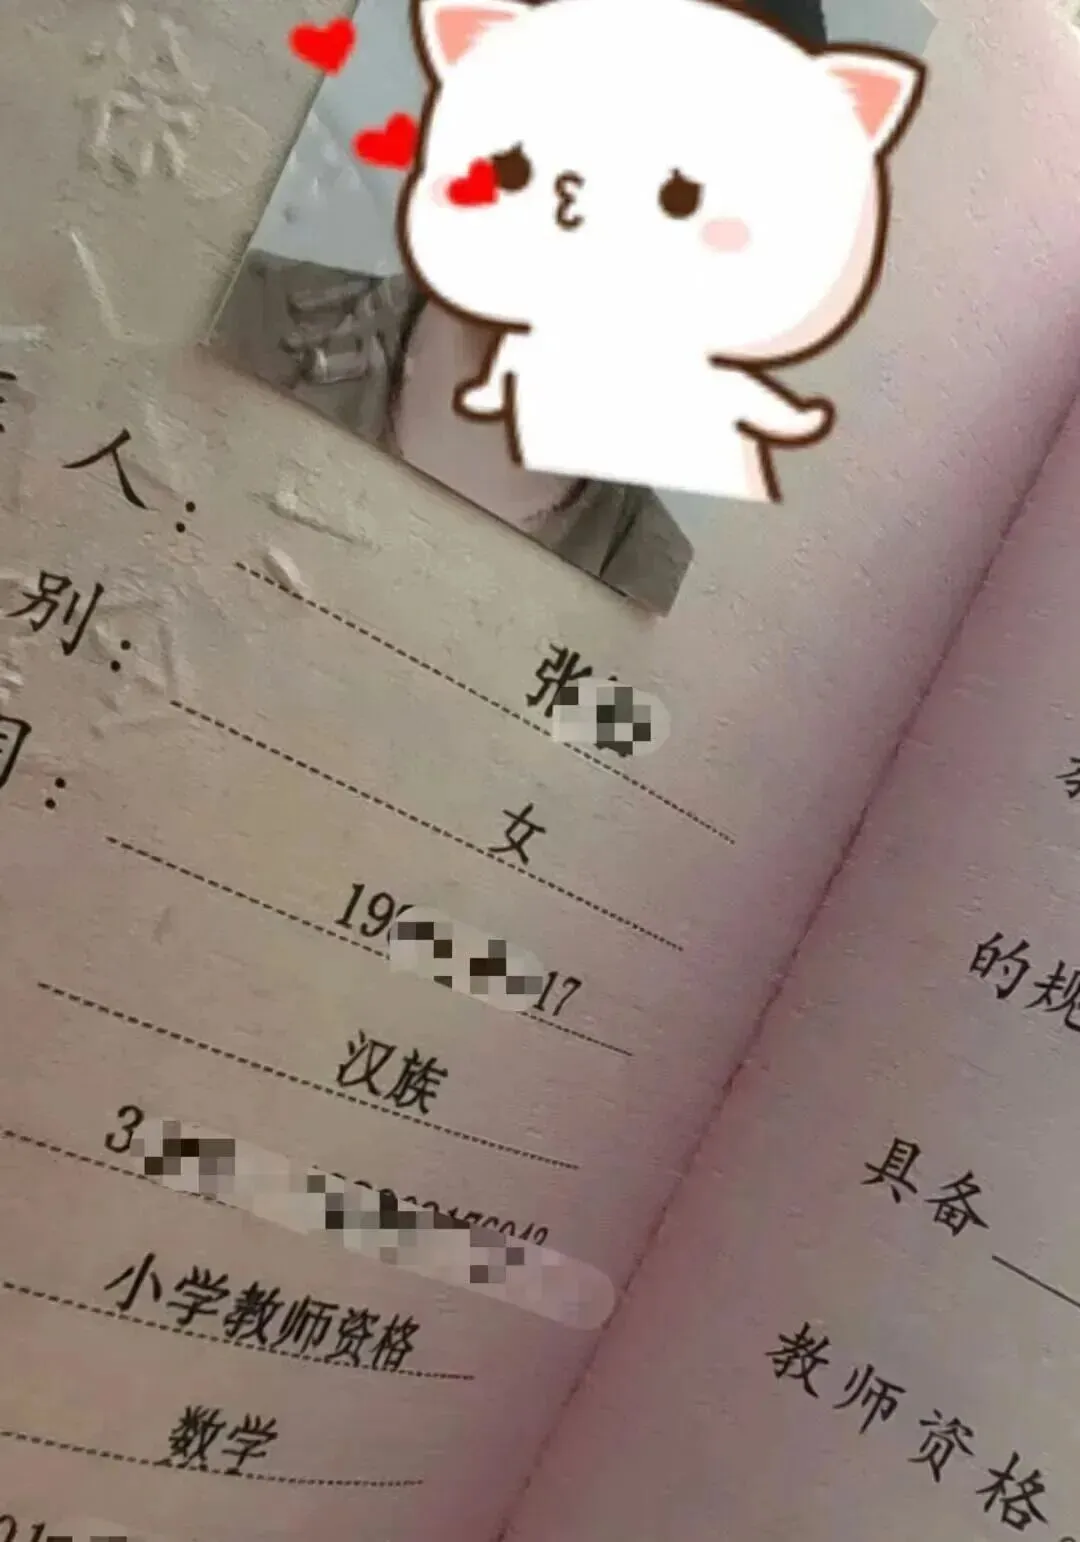 人：
别：
张
女
19
17
汉族
3
小学教师资格
数学
的规
具备
教师资格。